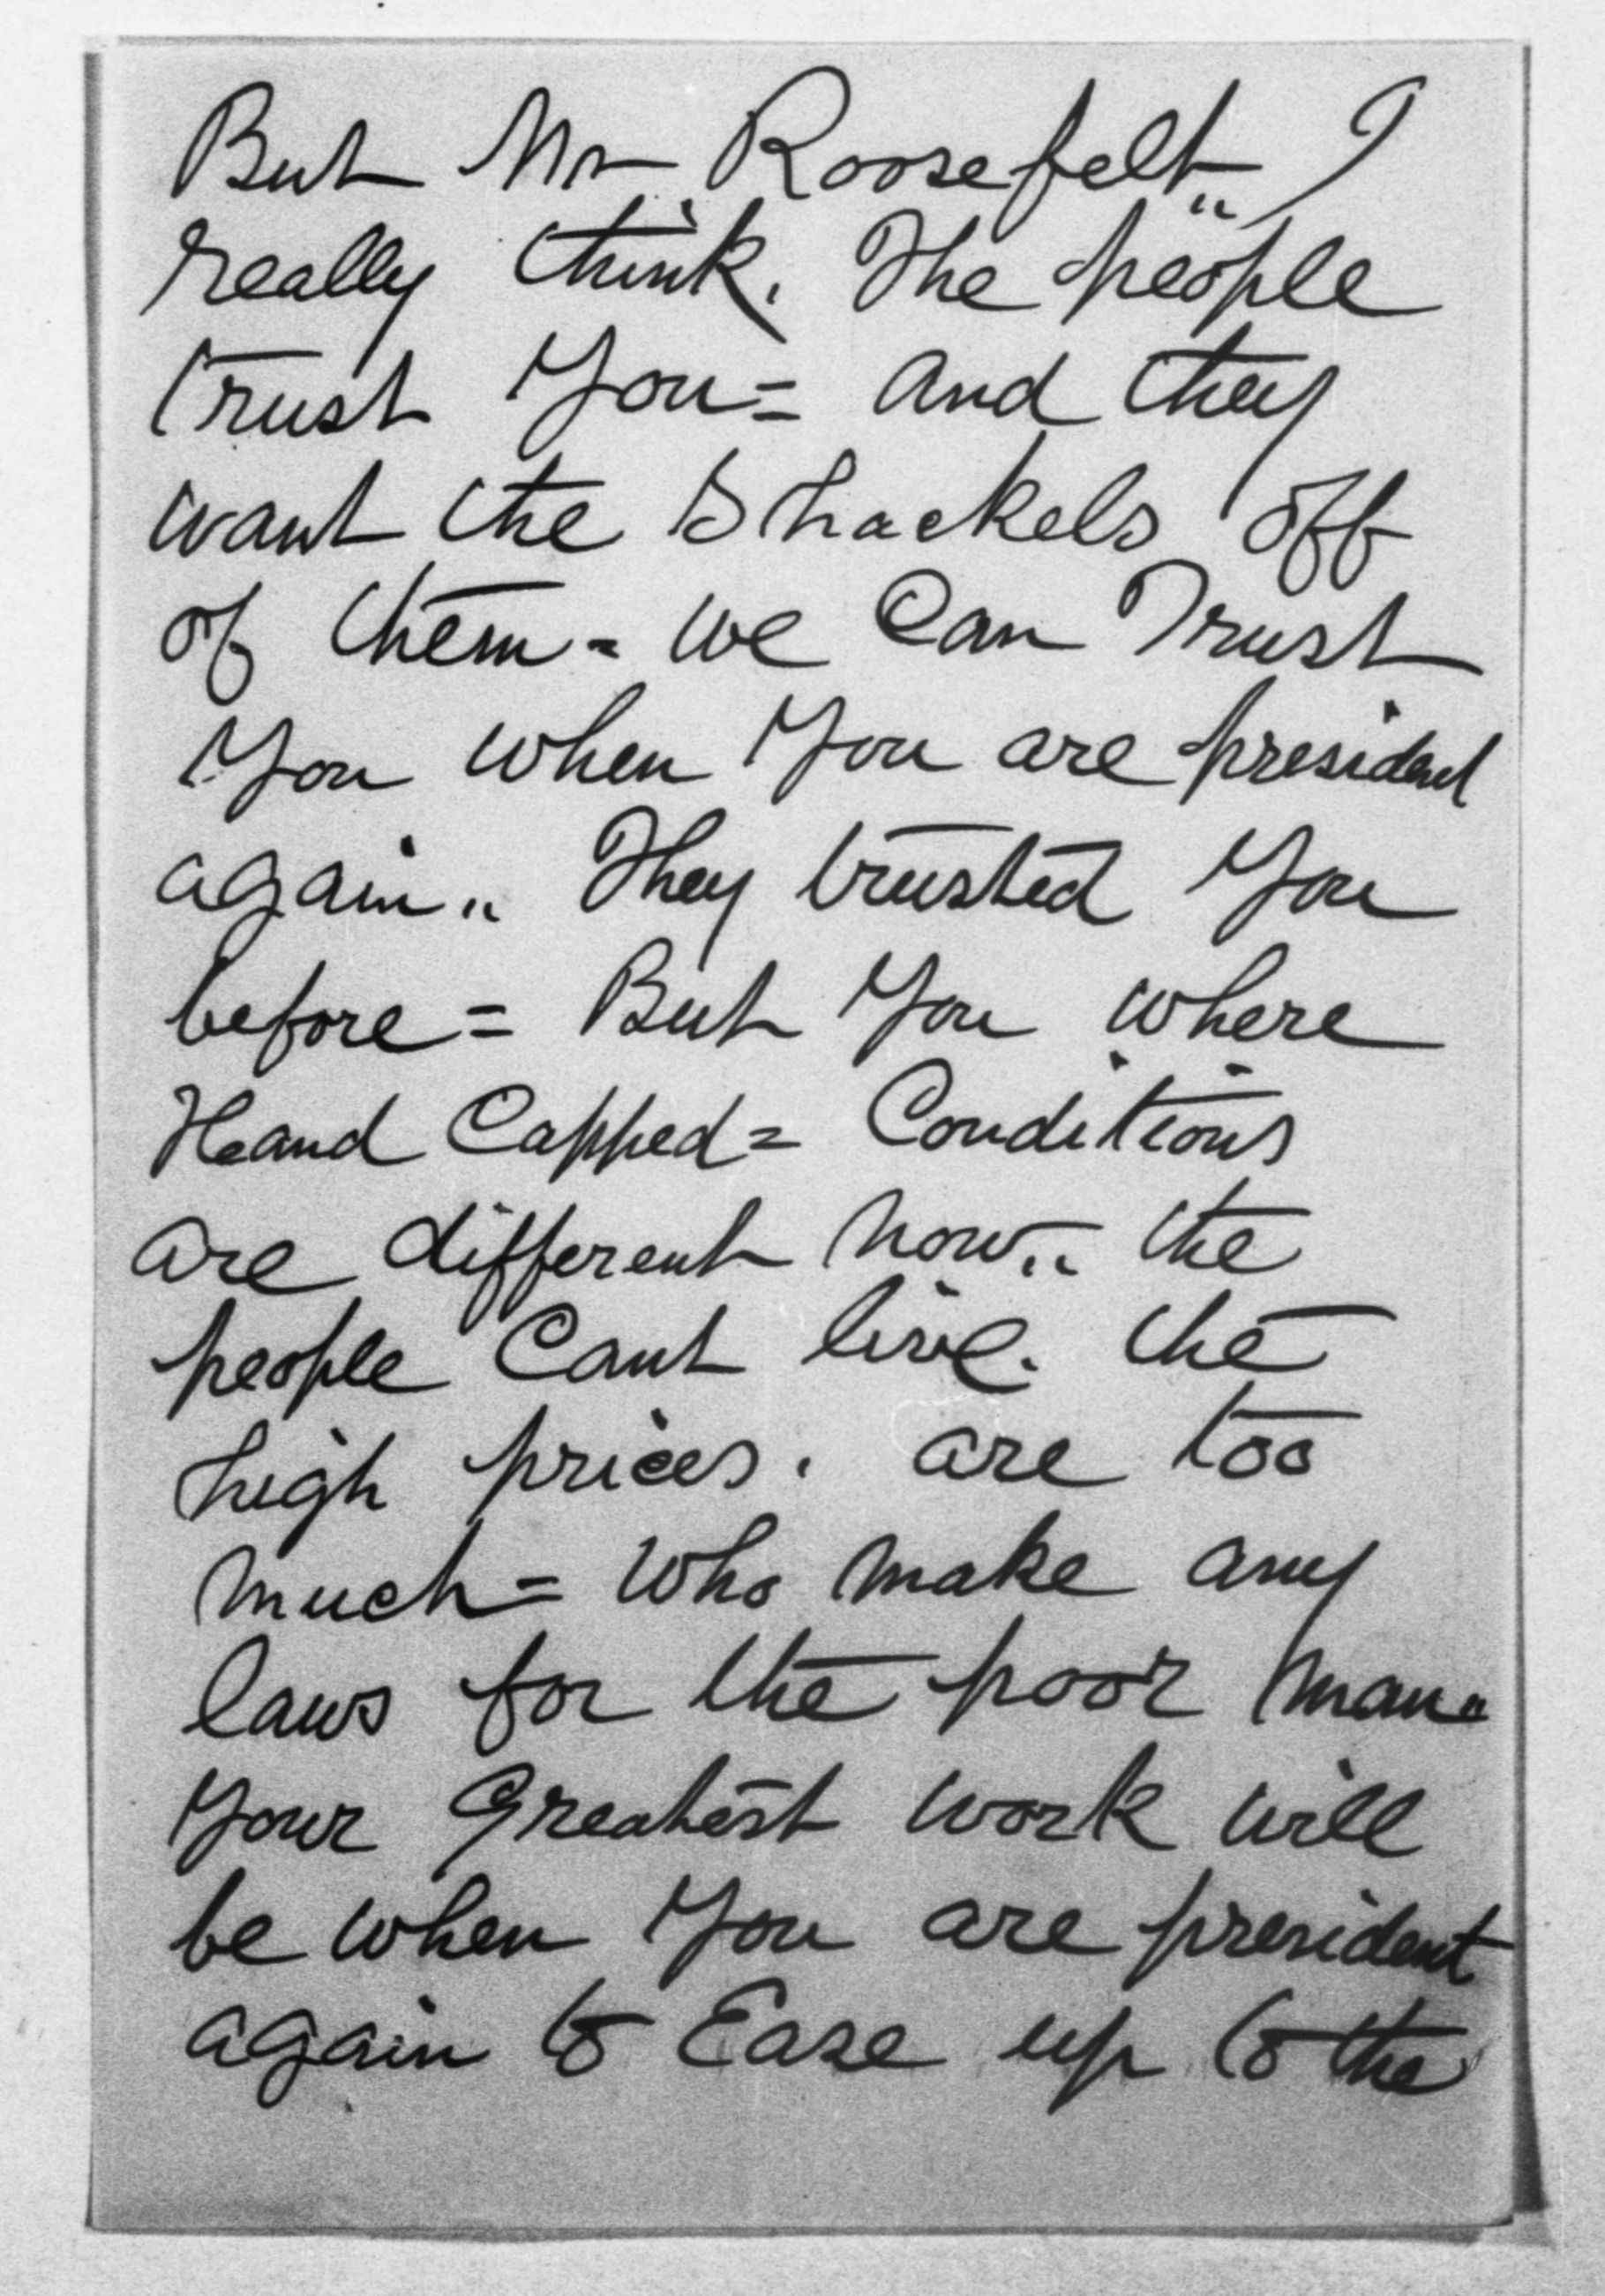 But Mr Roosefelt.. I
really think. The people
trust You = and they
want the Shackels off
of them = we Can Trust
You when You are president
again.. They trusted You
before = But You where
Hand Capped = Conditions
are different now.. the
people Cant live. the
high prices. are too
much = Who make any
laws for the poor man..
Your Greatest work will
be when You are president
again to Ease up to the